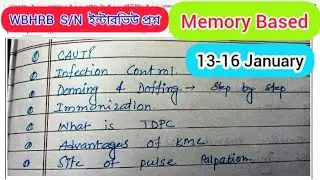 WBHRB S/N ইন্টারভিউ প্রশ্ন
Memory Based
13-16 January
CAUTI
Infection Control.
Donning & Doffing → Step by step
Immunization
What is TDPC
Advantages of KMC
Site of pulse palpation.